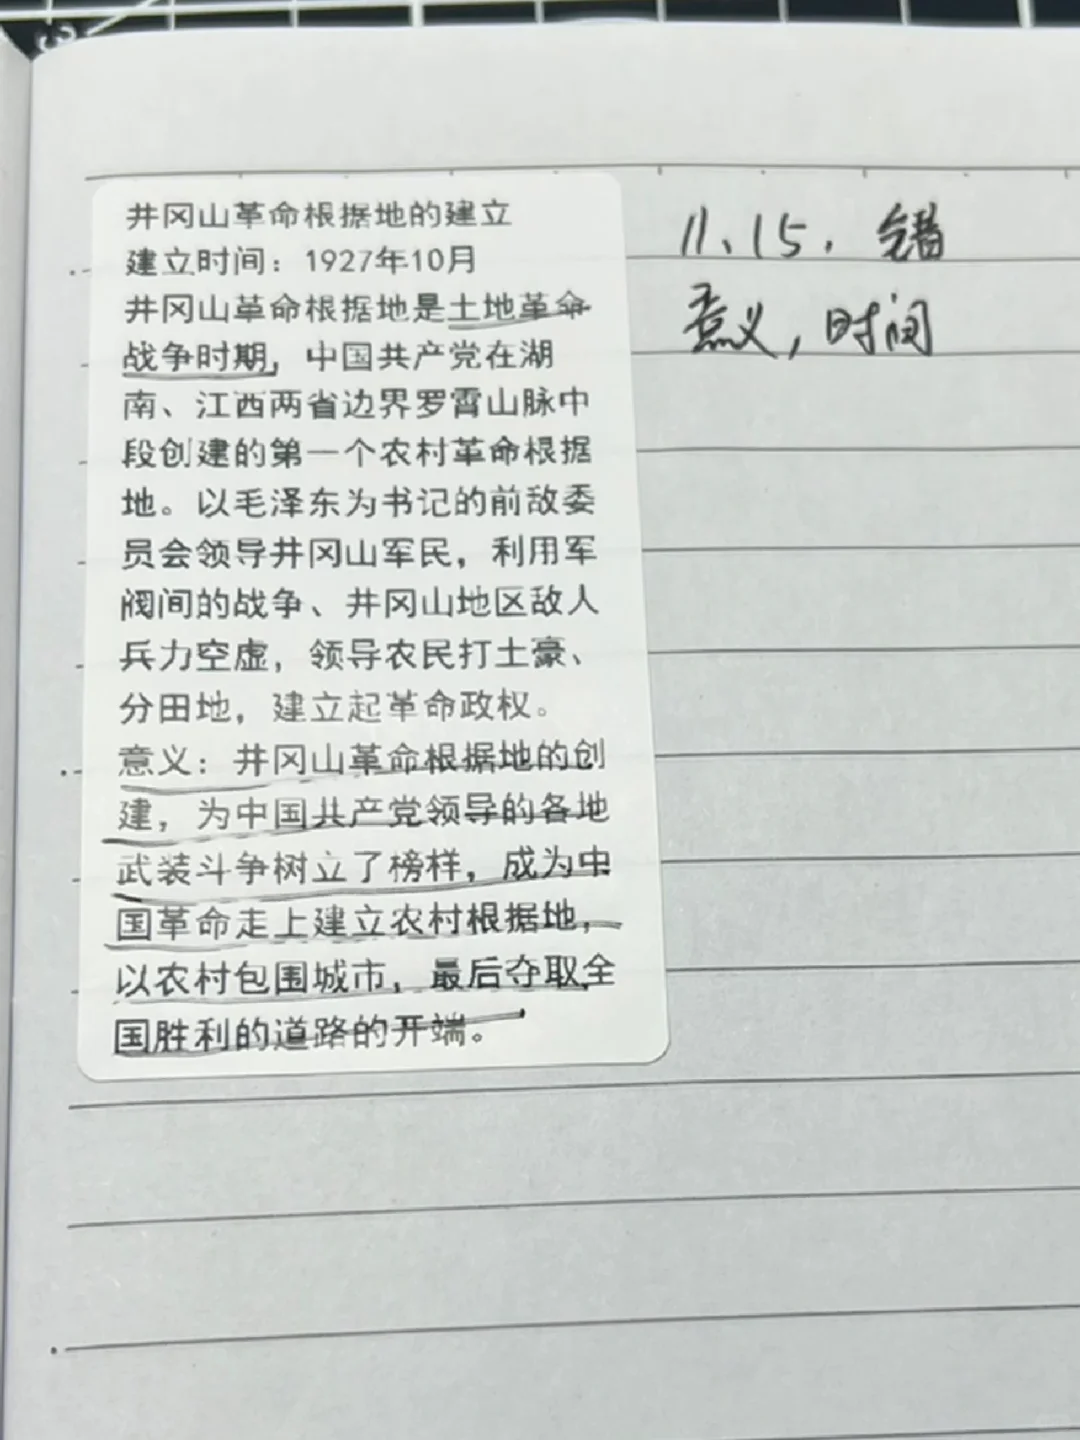 井冈山革命根据地的建立
建立时间：1927年10月
井冈山革命根据地是土地革命
战争时期，中国共产党在湖
南、江西两省边界罗霄山脉中
段创建的第一个农村革命根据
地。以毛泽东为书记的前敌委
员会领导井冈山军民，利用军
阀间的战争、井冈山地区敌人
兵力空虚，领导农民打土豪、
分田地，建立起革命政权。
意义：井冈山革命根据地的创
建，为中国共产党领导的各地
武装斗争树立了榜样，成为中
国革命走上建立农村根据地，
以农村包围城市，最后夺取全
国胜利的道路的开端。
11、15，错
意义，时间